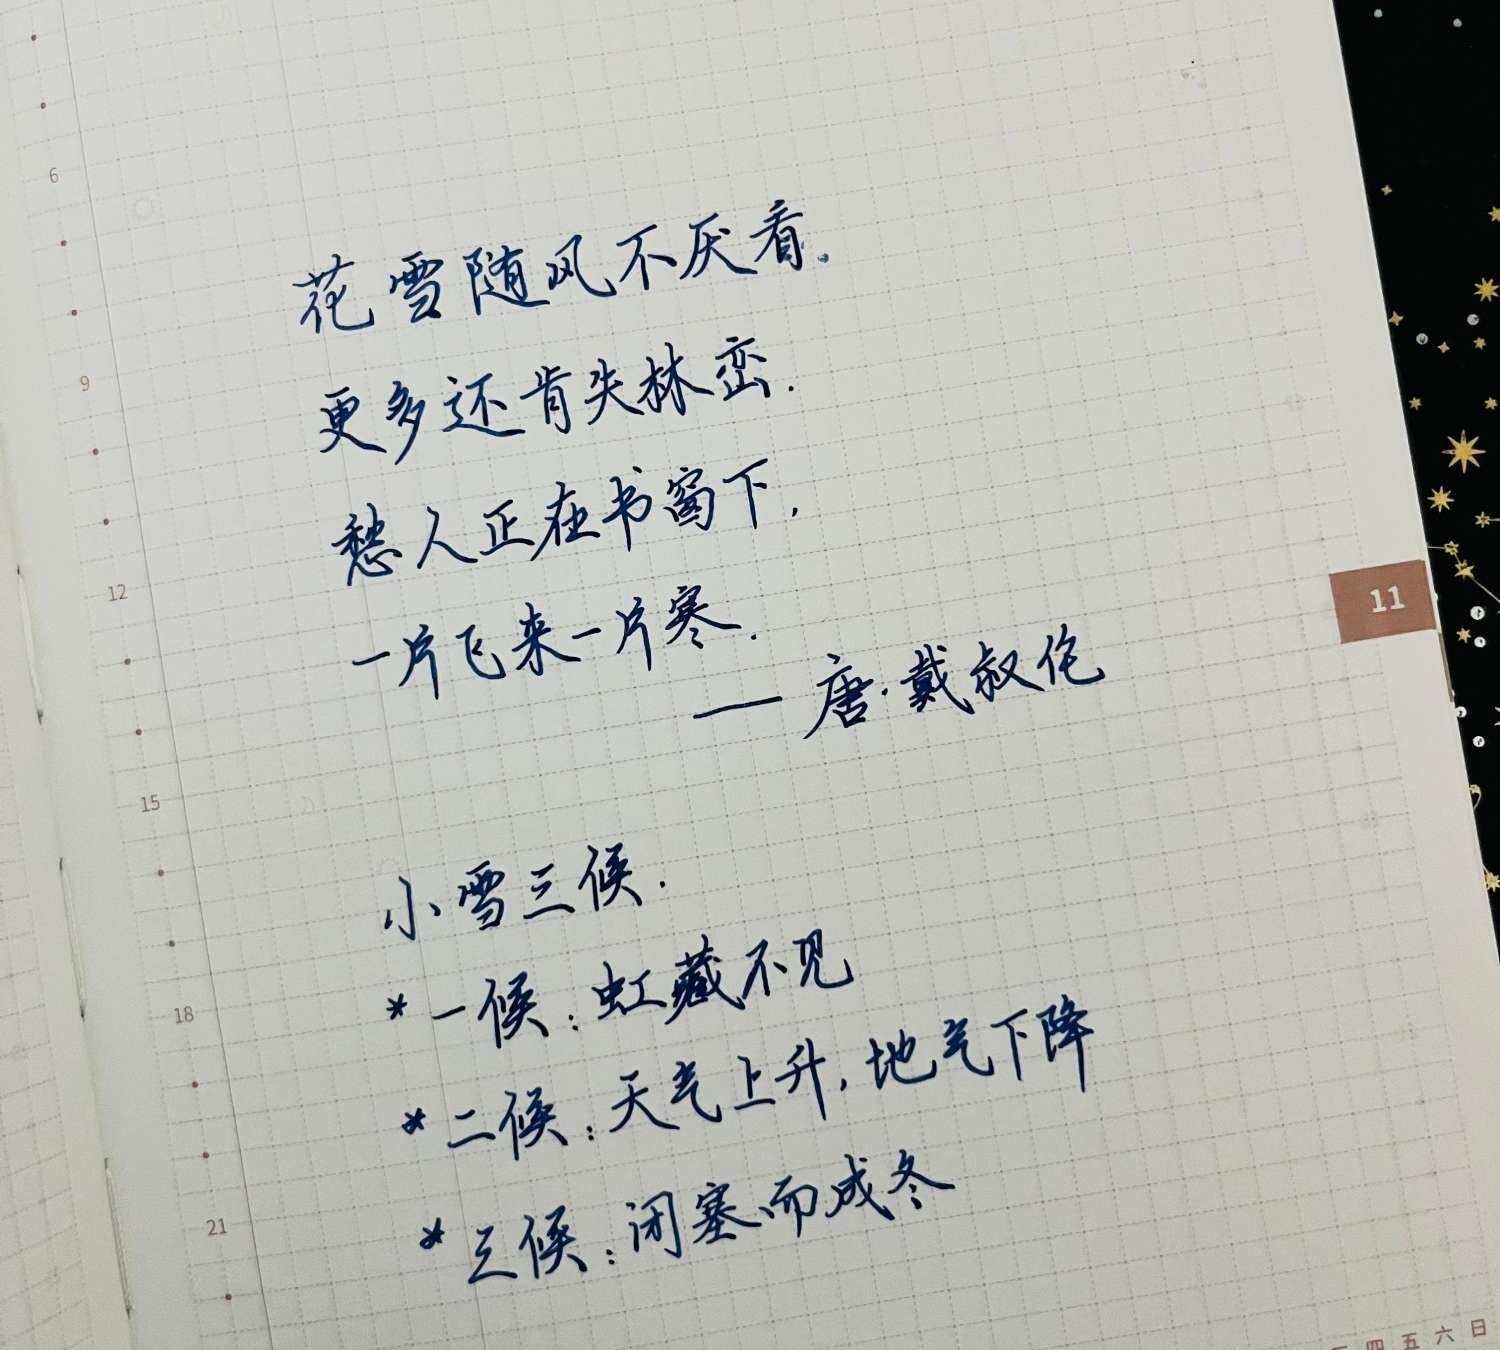 花雪随风不厌看.
更多还肯失林峦.
愁人正在书窗下,
一片飞来一片寒.
——唐·戴叔伦
小雪三候.
*一候:虹藏不见
*二候:天气上升,地气下降
*三候:闭塞而成冬
6
9
12
15
18
21
11
四 五 六 日